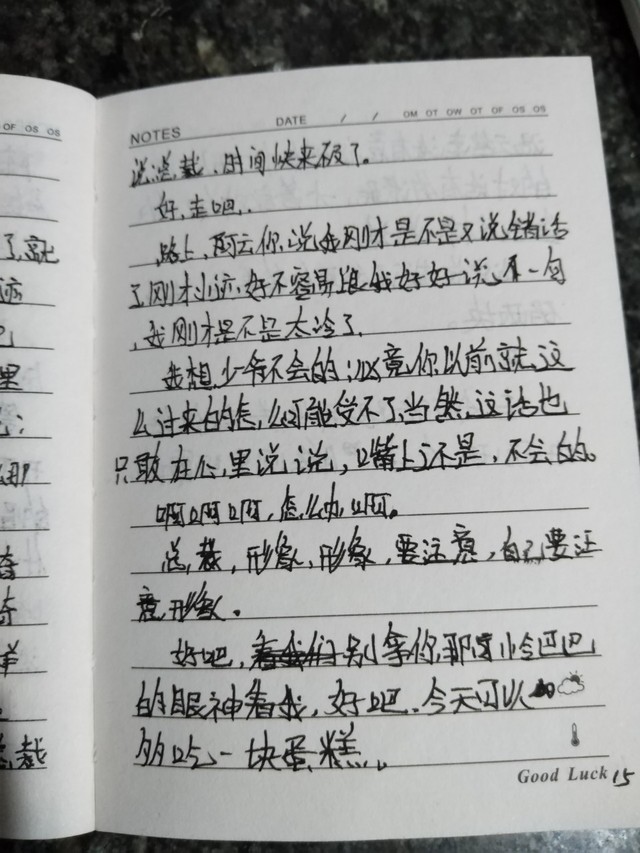 OF OS OS
NOTES DATE / / OM OT OW OT OF OS OS
说总裁，时间快来不及了。
好，走吧。
路上，阿云你说我刚才是不是又说错话
了，刚才小迹好不容易跟我好好说了一句
，我刚才是不是太冷了。
我想，少爷不会的；毕竟你以前就这
么过来的怎么可能受不了，当然，这话也
只敢在心里说说，嘴上还是，不会的。
啊啊啊，怎么办啊。
总裁，形象，形象，要注意，自己要注
意形象。
好吧，别拿你那冷巴巴
的眼神看我，好吧，今天可以
多吃一块蛋糕。
Good Luck 15
了，就
迹
里
裁